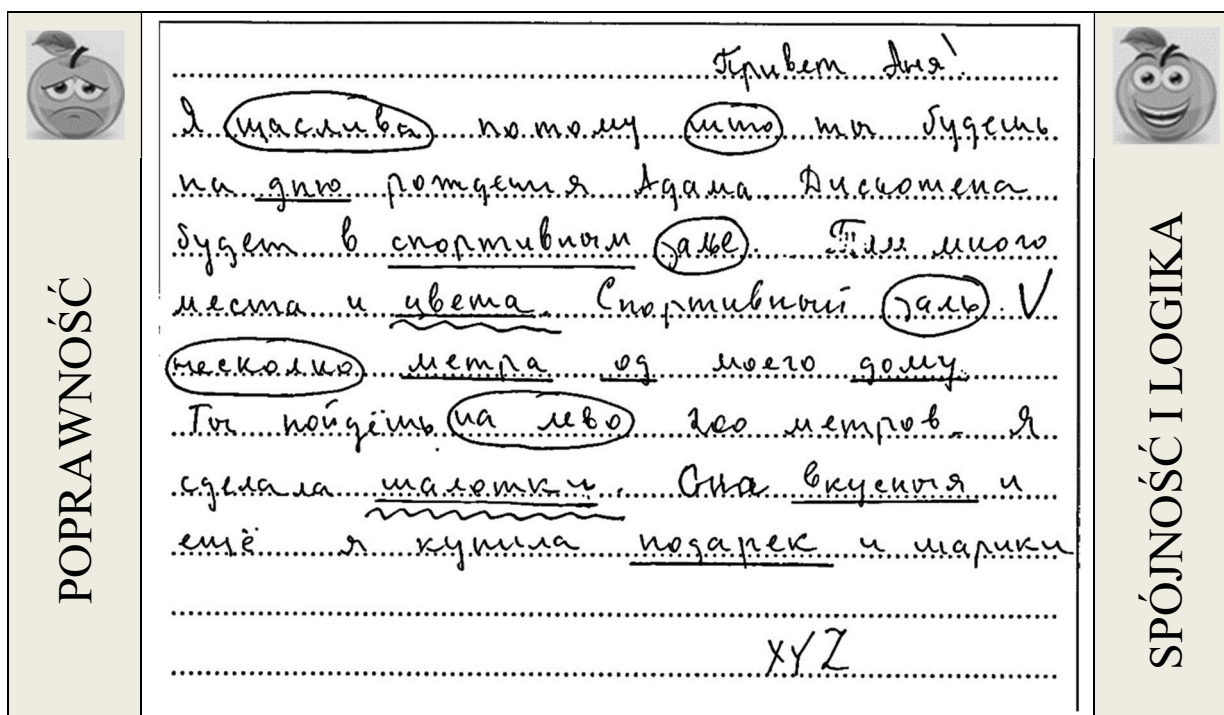 POPRAWNOŚĆ
Привет Аня!
Я щаслива потому што ты будешь
на дню рождения Адама. Дискотека
будет в спортивном зале. Там много
места и цвета. Спортивный заль. V
несколко метра од моего дому.
Ты пойдёшь на лево 200 метров. Я
сделала шалотки. Она вкусныя и
ещё я купила подарек и шарики
XYZ
SPÓJNOŚĆ I LOGIKA